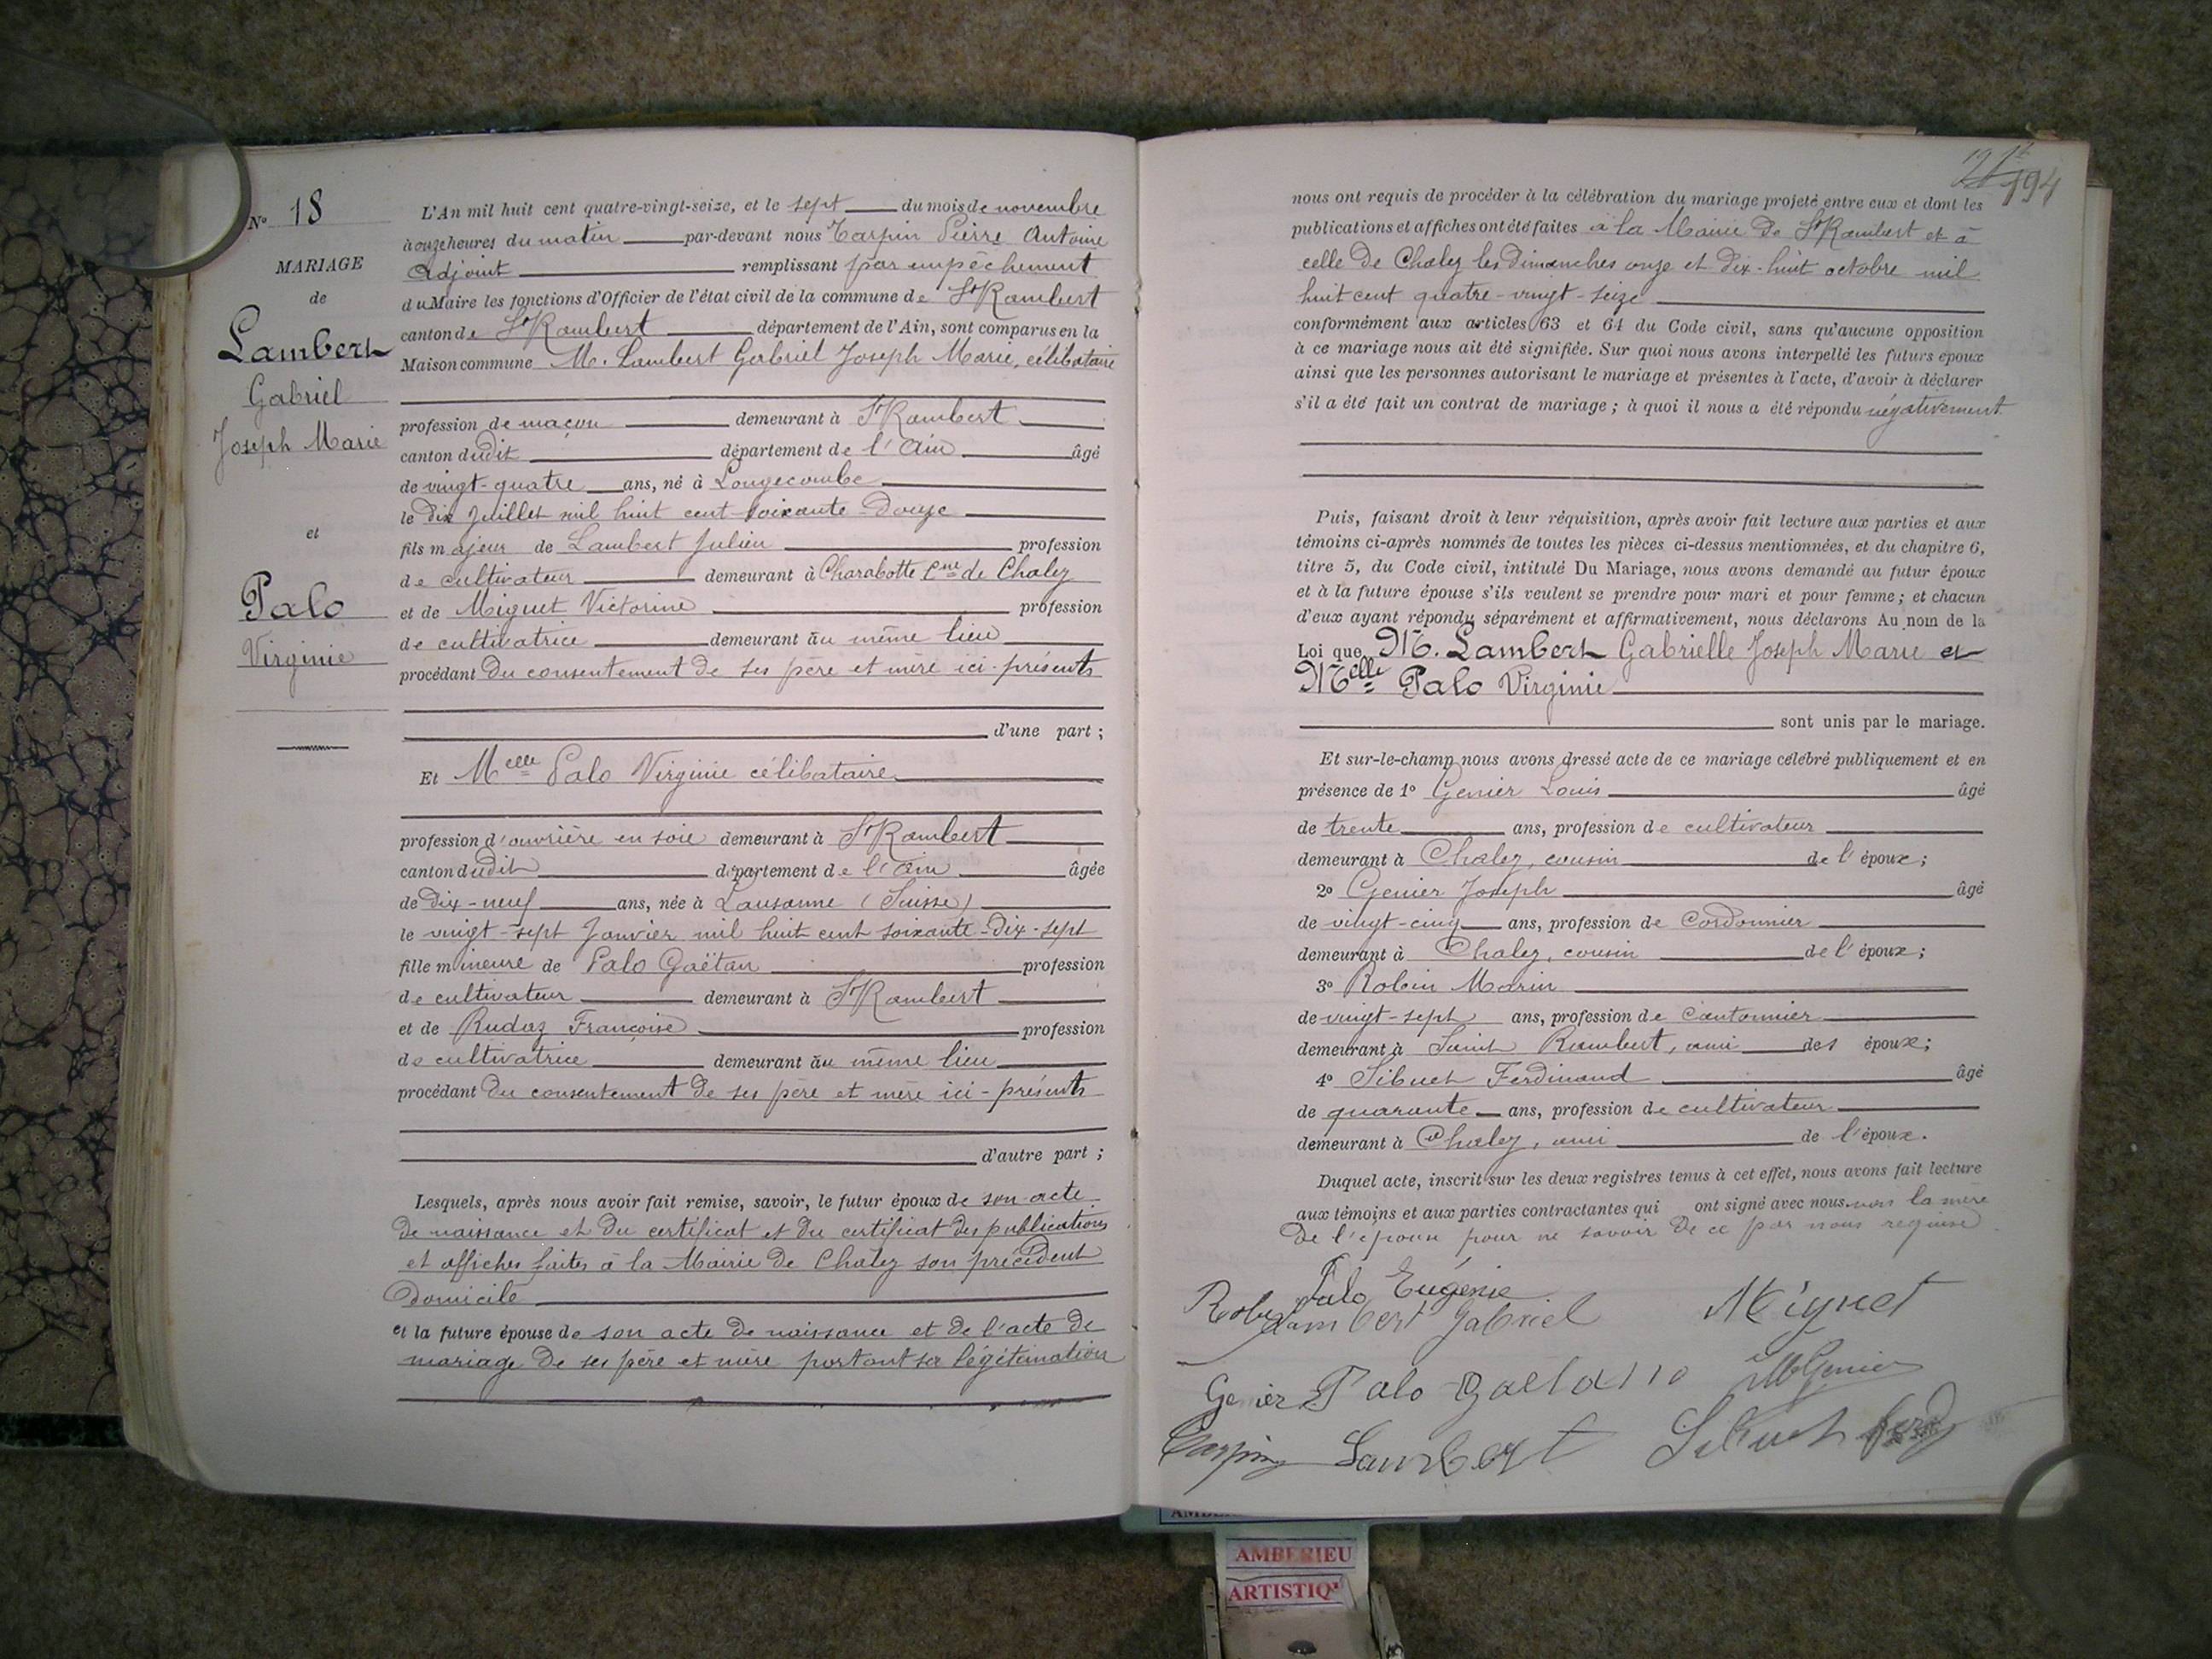 N° 18
MARIAGE
de
Lambert
Gabriel
Joseph Marie
et
Palo
Virginie
L'An mil huit cent quatre-vingt-seize, et le sept du mois de novembre
à onze heures du matin par-devant nous Tarpin Pierre Antoine
Adjoint remplissant par empêchement
du Maire les fonctions d'Officier de l'état civil de la commune de St Rambert
canton de St Rambert département de l'Ain, sont comparus en la
Maison commune M. Lambert Gabriel Joseph Marie, célibataire
profession de maçon demeurant à St Rambert
canton dudit département de l'Ain âgé
de vingt-quatre ans, né à Longecombe
le dix Juillet mil huit cent soixante-douze
fils majeur de Lambert Julien profession
de cultivateur demeurant à Charabotte Cne de Chaley
et de Miguet Victorine profession
de cultivatrice demeurant au même lieu
procédant du consentement de ses père et mère ici-présents
d'une part ;
Et Melle Palo Virginie célibataire
profession d'ouvrière en soie demeurant à St Rambert
canton dudit département de l'Ain âgée
de dix-neuf ans, née à Lausanne (Suisse)
le vingt-sept Janvier mil huit cent soixante-dix-sept
fille mineure de Palo Gaëtan profession
de cultivateur demeurant à St Rambert
et de Rudaz Françoise profession
de cultivatrice demeurant au même lieu
procédant du consentement de ses père et mère ici-présents
d'autre part ;
Lesquels, après nous avoir fait remise, savoir, le futur époux de son acte
de naissance et du certificat et du certificat des publications
et affiches faites à la Mairie de Chaley son précédent
domicile
et la future épouse de son acte de naissance et de l'acte de
mariage de ses père et mère portant sa légitimation
194
nous ont requis de procéder à la célébration du mariage projeté entre eux et dont les
publications et affiches ont été faites à la Mairie de St Rambert et à
celle de Chaley les dimanches onze et dix-huit octobre mil
huit cent quatre-vingt-seize
conformément aux articles 63 et 64 du Code civil, sans qu'aucune opposition
à ce mariage nous ait été signifiée. Sur quoi nous avons interpellé les futurs époux
ainsi que les personnes autorisant le mariage et présentes à l'acte, d'avoir à déclarer
s'il a été fait un contrat de mariage ; à quoi il nous a été répondu négativement
Puis, faisant droit à leur réquisition, après avoir fait lecture aux parties et aux
témoins ci-après nommés de toutes les pièces ci-dessus mentionnées, et du chapitre 6,
titre 5, du Code civil, intitulé Du Mariage, nous avons demandé au futur époux
et à la future épouse s'ils veulent se prendre pour mari et pour femme ; et chacun
d'eux ayant répondu séparément et affirmativement, nous déclarons Au nom de la
Loi que M. Lambert Gabrielle Joseph Marie et
Melle Palo Virginie
sont unis par le mariage.
Et sur-le-champ nous avons dressé acte de ce mariage célébré publiquement et en
présence de 1° Genier Louis âgé
de trente ans, profession de cultivateur
demeurant à Chaley, cousin de l'époux ;
2° Genier Joseph âgé
de vingt-cinq ans, profession de cordonnier
demeurant à Chaley, cousin de l'époux ;
3° Robin Marin
de vingt-sept ans, profession de cantonnier
demeurant à Saint Rambert, ami des époux ;
4° Sibuet Ferdinand âgé
de quarante ans, profession de cultivateur
demeurant à Chaley, ami de l'époux.
Duquel acte, inscrit sur les deux registres tenus à cet effet, nous avons fait lecture
aux témoins et aux parties contractantes qui ont signé avec nous non la mère
de l'époux pour ne savoir de ce par nous requise
Palo Eugénie
Robin Lambert Gabriel Miguet
Genier Palo Gaetano Genier
Tarpin Lambert Sibuet ferd
AMBERIEU
ARTISTIQ